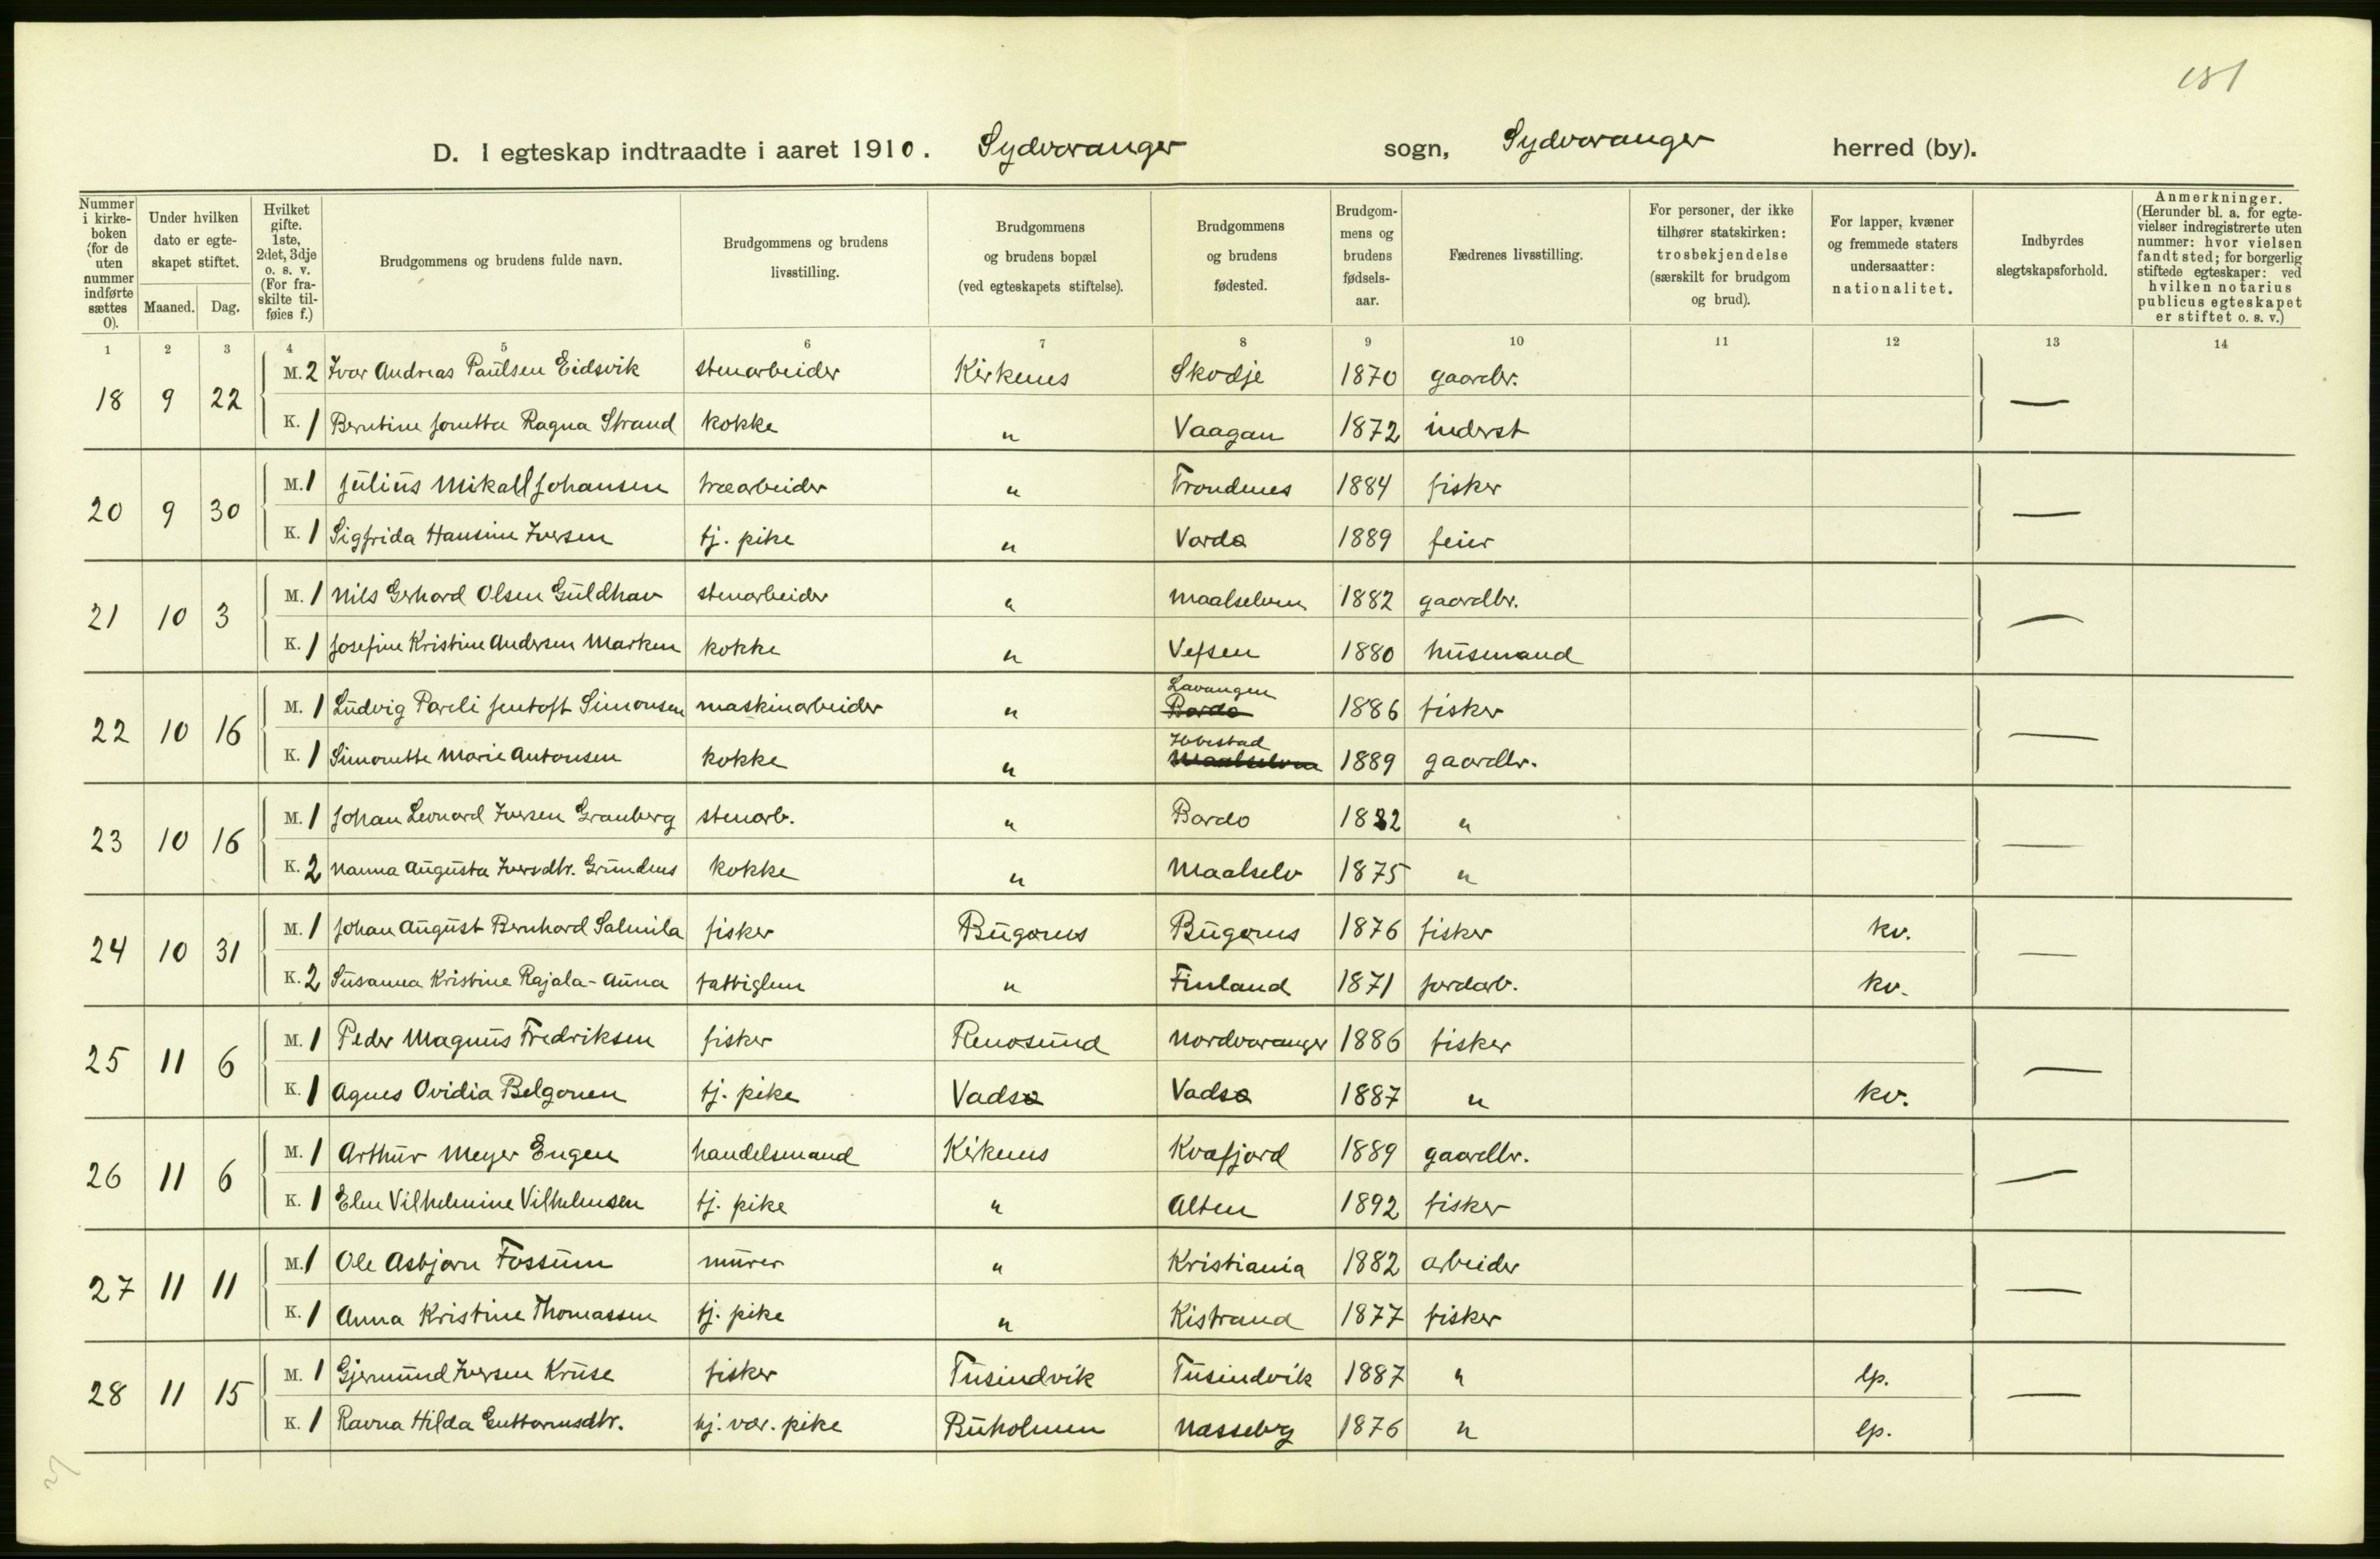 181
D. I egteskap indtraadte i aaret 1910. Sydvaranger sogn, Sydvaranger herred (by).
Nummer i kirkeboken (for de uten nummer indførte sættes 0). Under hvilken dato er egteskapet stiftet. Maaned. Dag. Hvilket gifte. 1ste, 2det, 3dje o. s. v. (For fraskilte tilføies f.) Brudgommens og brudens fulde navn. Brudgommens og brudens livsstilling. Brudgommens og brudens bopæl (ved egteskapets stiftelse). Brudgommens og brudens fødested. Brudgommens og brudens fødselsaar. Fædrenes livsstilling. For personer, der ikke tilhører statskirken: trosbekjendelse (særskilt for brudgom og brud). For lapper, kvæner og fremmede staters undersaatter: nationalitet. Indbyrdes slegtskapsforhold. Anmerkninger. (Herunder bl. a. for egtevielser indregistrerte uten nummer: hvor vielsen fandt sted; for borgerlig stiftede egteskaper: ved hvilken notarius publicus egteskapet er stiftet o. s. v.)
1 2 3 4 5 6 7 8 9 10 11 12 13 14
18 9 22 M. 2 Ivar Andreas Paulsen Eidsvik stenarbeider Kirkenes Skodje 1870 gaardbr. —
K. 1 Berntine Jonetta Ragna Strand kokke " Vaagan 1872 inderst
20 9 30 M. 1 Julius Mikall Johansen træarbeider " Trondenes 1884 fisker —
K. 1 Sigfrida Hansine Iversen tj. pike " Vardø 1889 feier
21 10 3 M. 1 Nils Gerhard Olsen Guldhav stenarbeider " Maalselven 1882 gaardbr. —
K. 1 Josefine Kristine Andersen Marken kokke " Vefsen 1880 husmand
22 10 16 M. 1 Ludvig Pareli Jentoft Simonsen maskinarbeider " Lavangen Bardo 1886 fisker —
K. 1 Simonette Marie Antonsen kokke " Ibbestad Maalselven 1889 gaardbr.
23 10 16 M. 1 Johan Leonard Iversen Granberg stenarb. " Bardo 1882 " —
K. 2 Nanna Augusta Iversdtr. Grundnes kokke " Maalselv 1875 "
24 10 31 M. 1 Johan August Bernhard Salmila fisker Bugønes Bugønes 1876 fisker kv. —
K. 2 Susanna Kristine Rajala-Auna fattiglem " Finland 1871 jordarb. kv.
25 11 6 M. 1 Peder Magnus Fredriksen fisker Renøsund Nordvaranger 1886 fisker —
K. 1 Agnes Ovidia Belgonen tj. pike Vadsø Vadsø 1887 " kv.
26 11 6 M. 1 Arthur Meyer Engen handelsmand Kirkenes Kvæfjord 1889 gaardbr. —
K. 1 Elen Vilhelmine Vilhelmsen tj. pike " Alten 1892 fisker
27 11 11 M. 1 Ole Asbjørn Fossum murer " Kristiania 1882 arbeider —
K. 1 Anna Kristine Thomassen tj. pike " Kistrand 1877 fisker
28 11 15 M. 1 Gjermund Iversen Kruse fisker Tusindvik Tusindvik 1887 " lp. —
K. 1 Ravna Hilda Guttormsdtr. hj. vær. pike Buholmen Næsseby 1876 " lp.